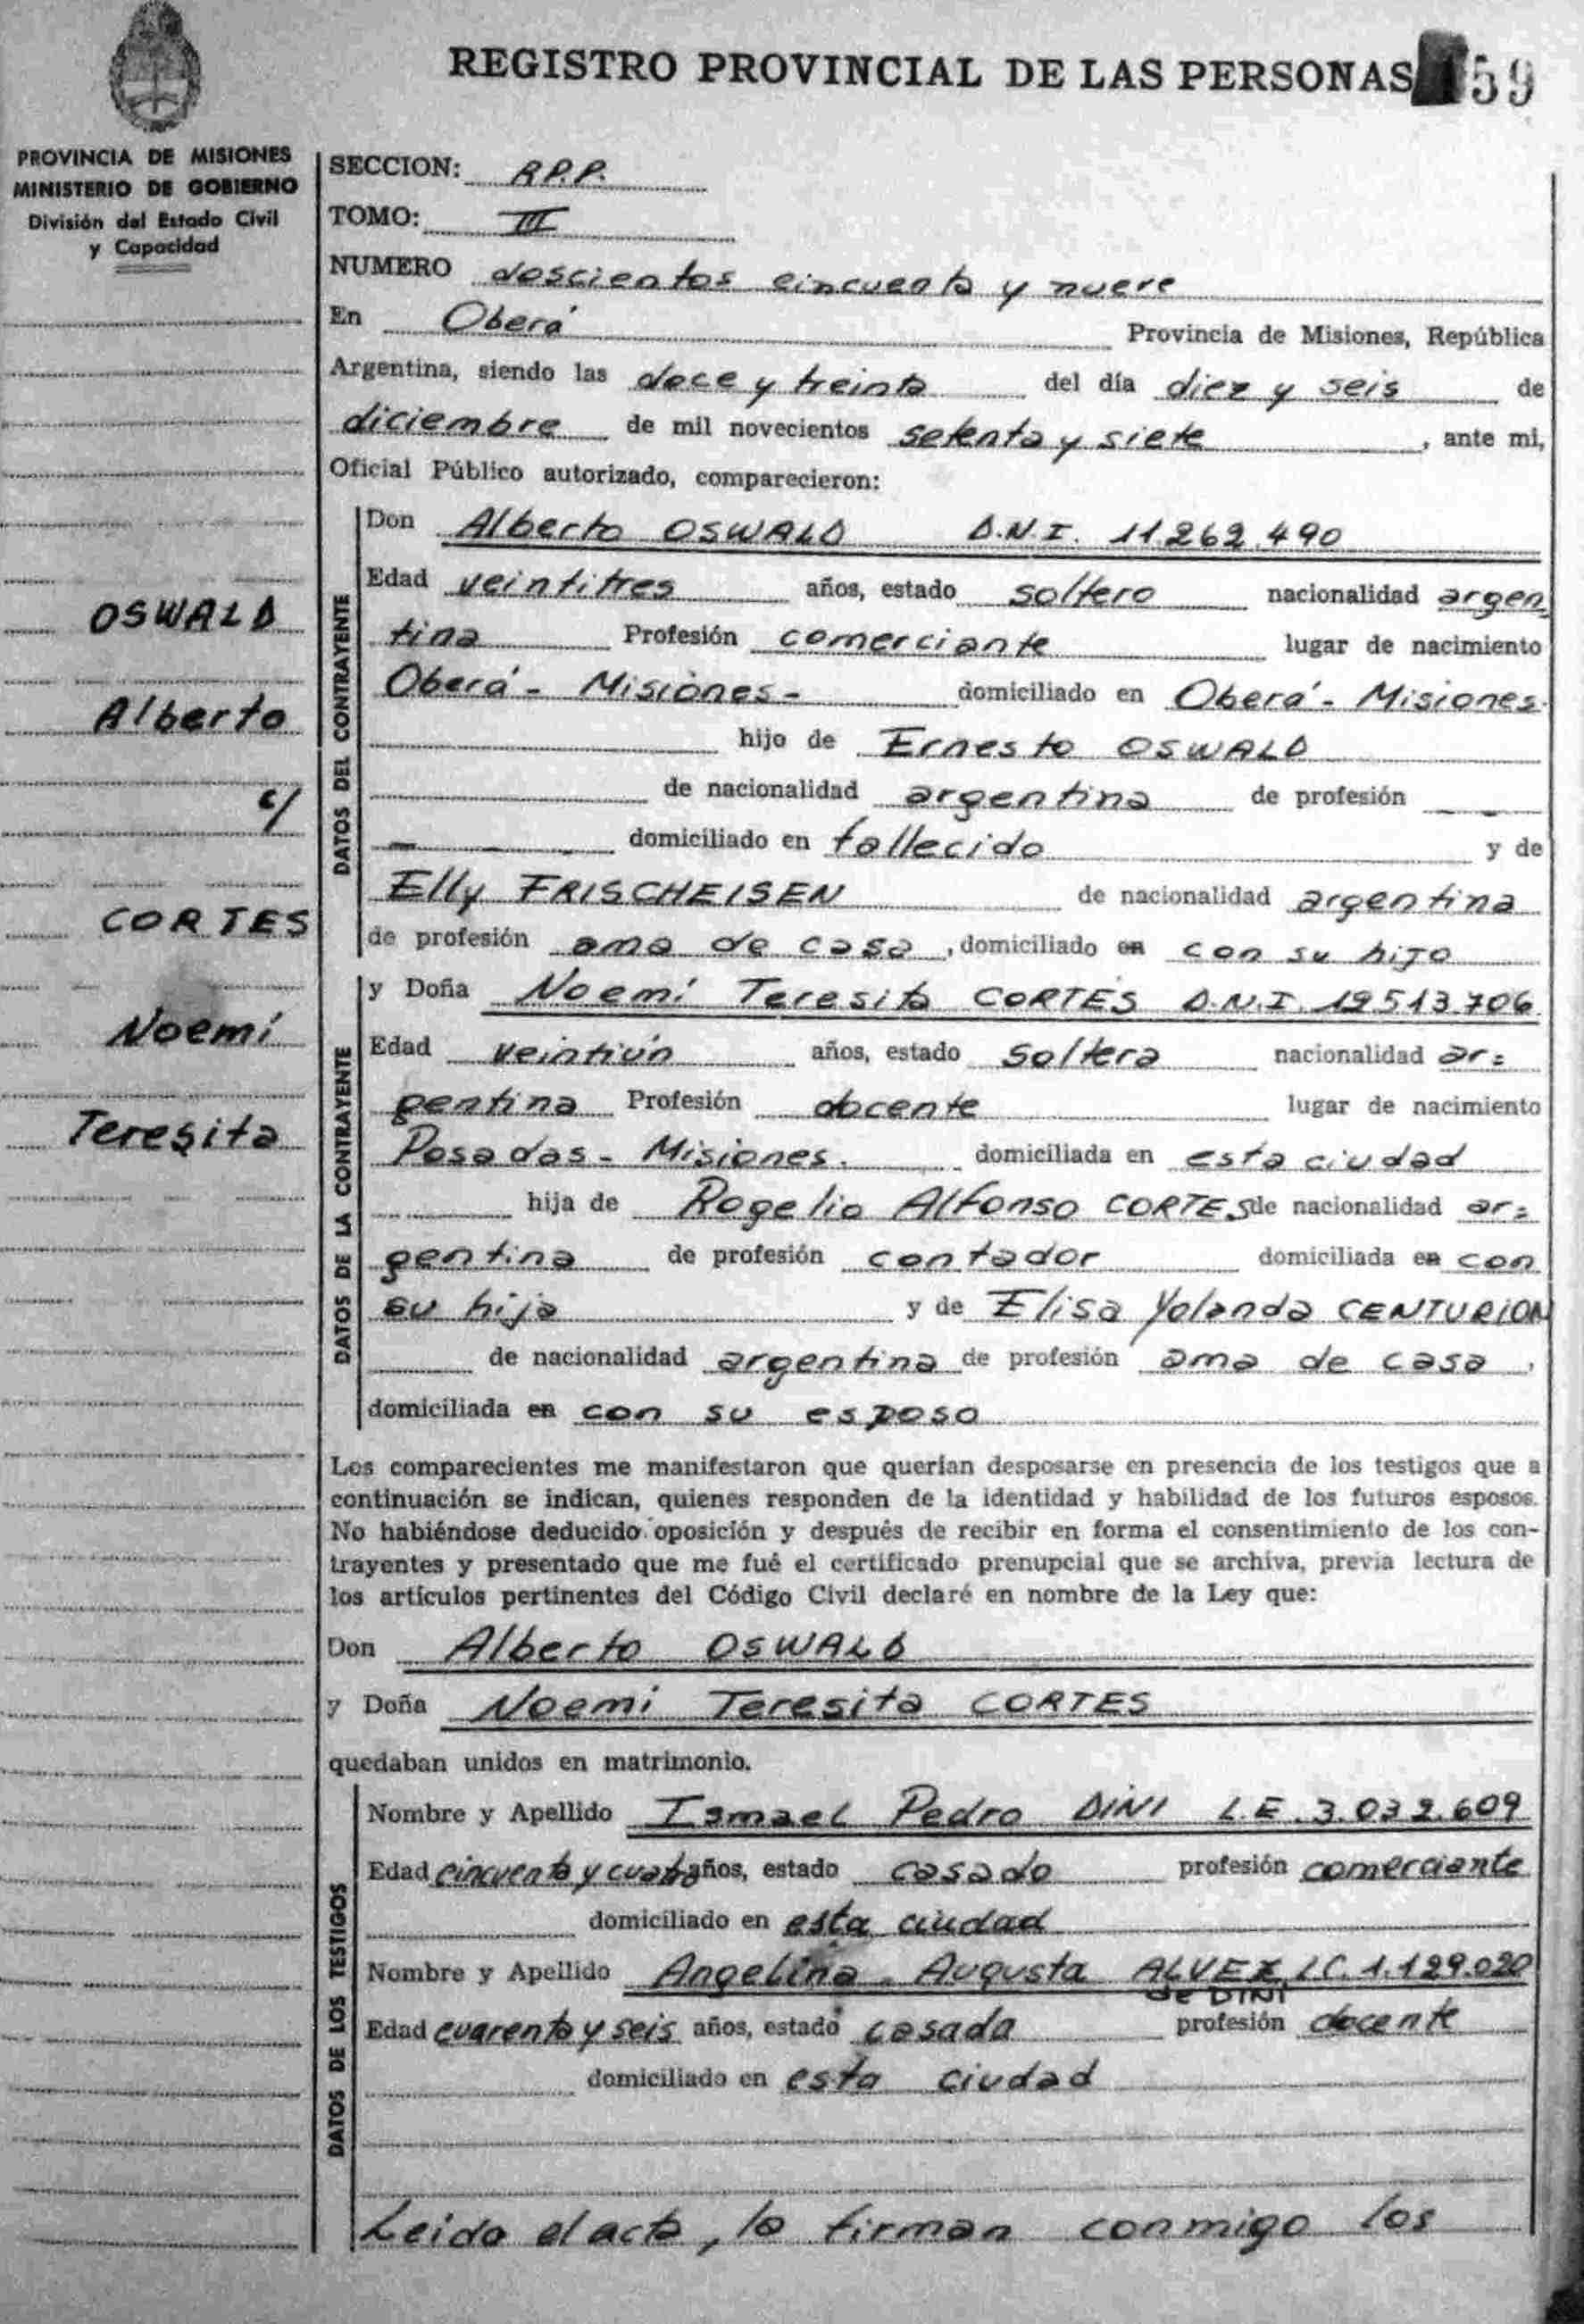 REGISTRO PROVINCIAL DE LAS PERSONAS 59
PROVINCIA DE MISIONES
MINISTERIO DE GOBIERNO
División del Estado Civil
y Capacidad
OSWALD
Alberto
c/
CORTES
Noemí
Teresita
SECCION: R.P.P.
TOMO: III
NUMERO doscientos cincuenta y nueve
En Oberá Provincia de Misiones, República
Argentina, siendo las doce y treinta del día diez y seis de
diciembre de mil novecientos setenta y siete, ante mi,
Oficial Público autorizado, comparecieron:
DATOS DEL CONTRAYENTE
Don Alberto OSWALD D.N.I. 11.262.490
Edad veintitres años, estado soltero nacionalidad argen
tina Profesión comerciante lugar de nacimiento
Oberá - Misiones - domiciliado en Oberá - Misiones.
hijo de Ernesto OSWALD
de nacionalidad argentina de profesión —
— domiciliado en fallecido y de
Elly FRISCHEISEN de nacionalidad argentina
de profesión ama de casa, domiciliado en con su hijo
DATOS DE LA CONTRAYENTE
y Doña Noemí Teresita CORTES D.N.I. 12.513.706
Edad veintiún años, estado soltera nacionalidad ar=
gentina Profesión docente lugar de nacimiento
Posadas - Misiones. domiciliada en esta ciudad
hija de Rogelio Alfonso CORTES de nacionalidad ar=
gentina de profesión contador domiciliada en con
su hija y de Elisa Yolanda CENTURION
de nacionalidad argentina de profesión ama de casa,
domiciliada en con su esposo
Los comparecientes me manifestaron que querían desposarse en presencia de los testigos que a
continuación se indican, quienes responden de la identidad y habilidad de los futuros esposos.
No habiéndose deducido oposición y después de recibir en forma el consentimiento de los con-
trayentes y presentado que me fué el certificado prenupcial que se archiva, previa lectura de
los artículos pertinentes del Código Civil declaré en nombre de la Ley que:
Don Alberto OSWALD
y Doña Noemi Teresita CORTES
quedaban unidos en matrimonio.
DATOS DE LOS TESTIGOS
Nombre y Apellido Ismael Pedro DINI L.E. 3.032.609
Edad cincuenta y cuatro años, estado casado profesión comerciante
domiciliado en esta ciudad
Nombre y Apellido Angelina Augusta ALVEZ L.C. 1.129.020
de DINI
Edad cuarenta y seis años, estado casada profesión docente
domiciliado en esta ciudad
Leida el acta, la firman conmigo los